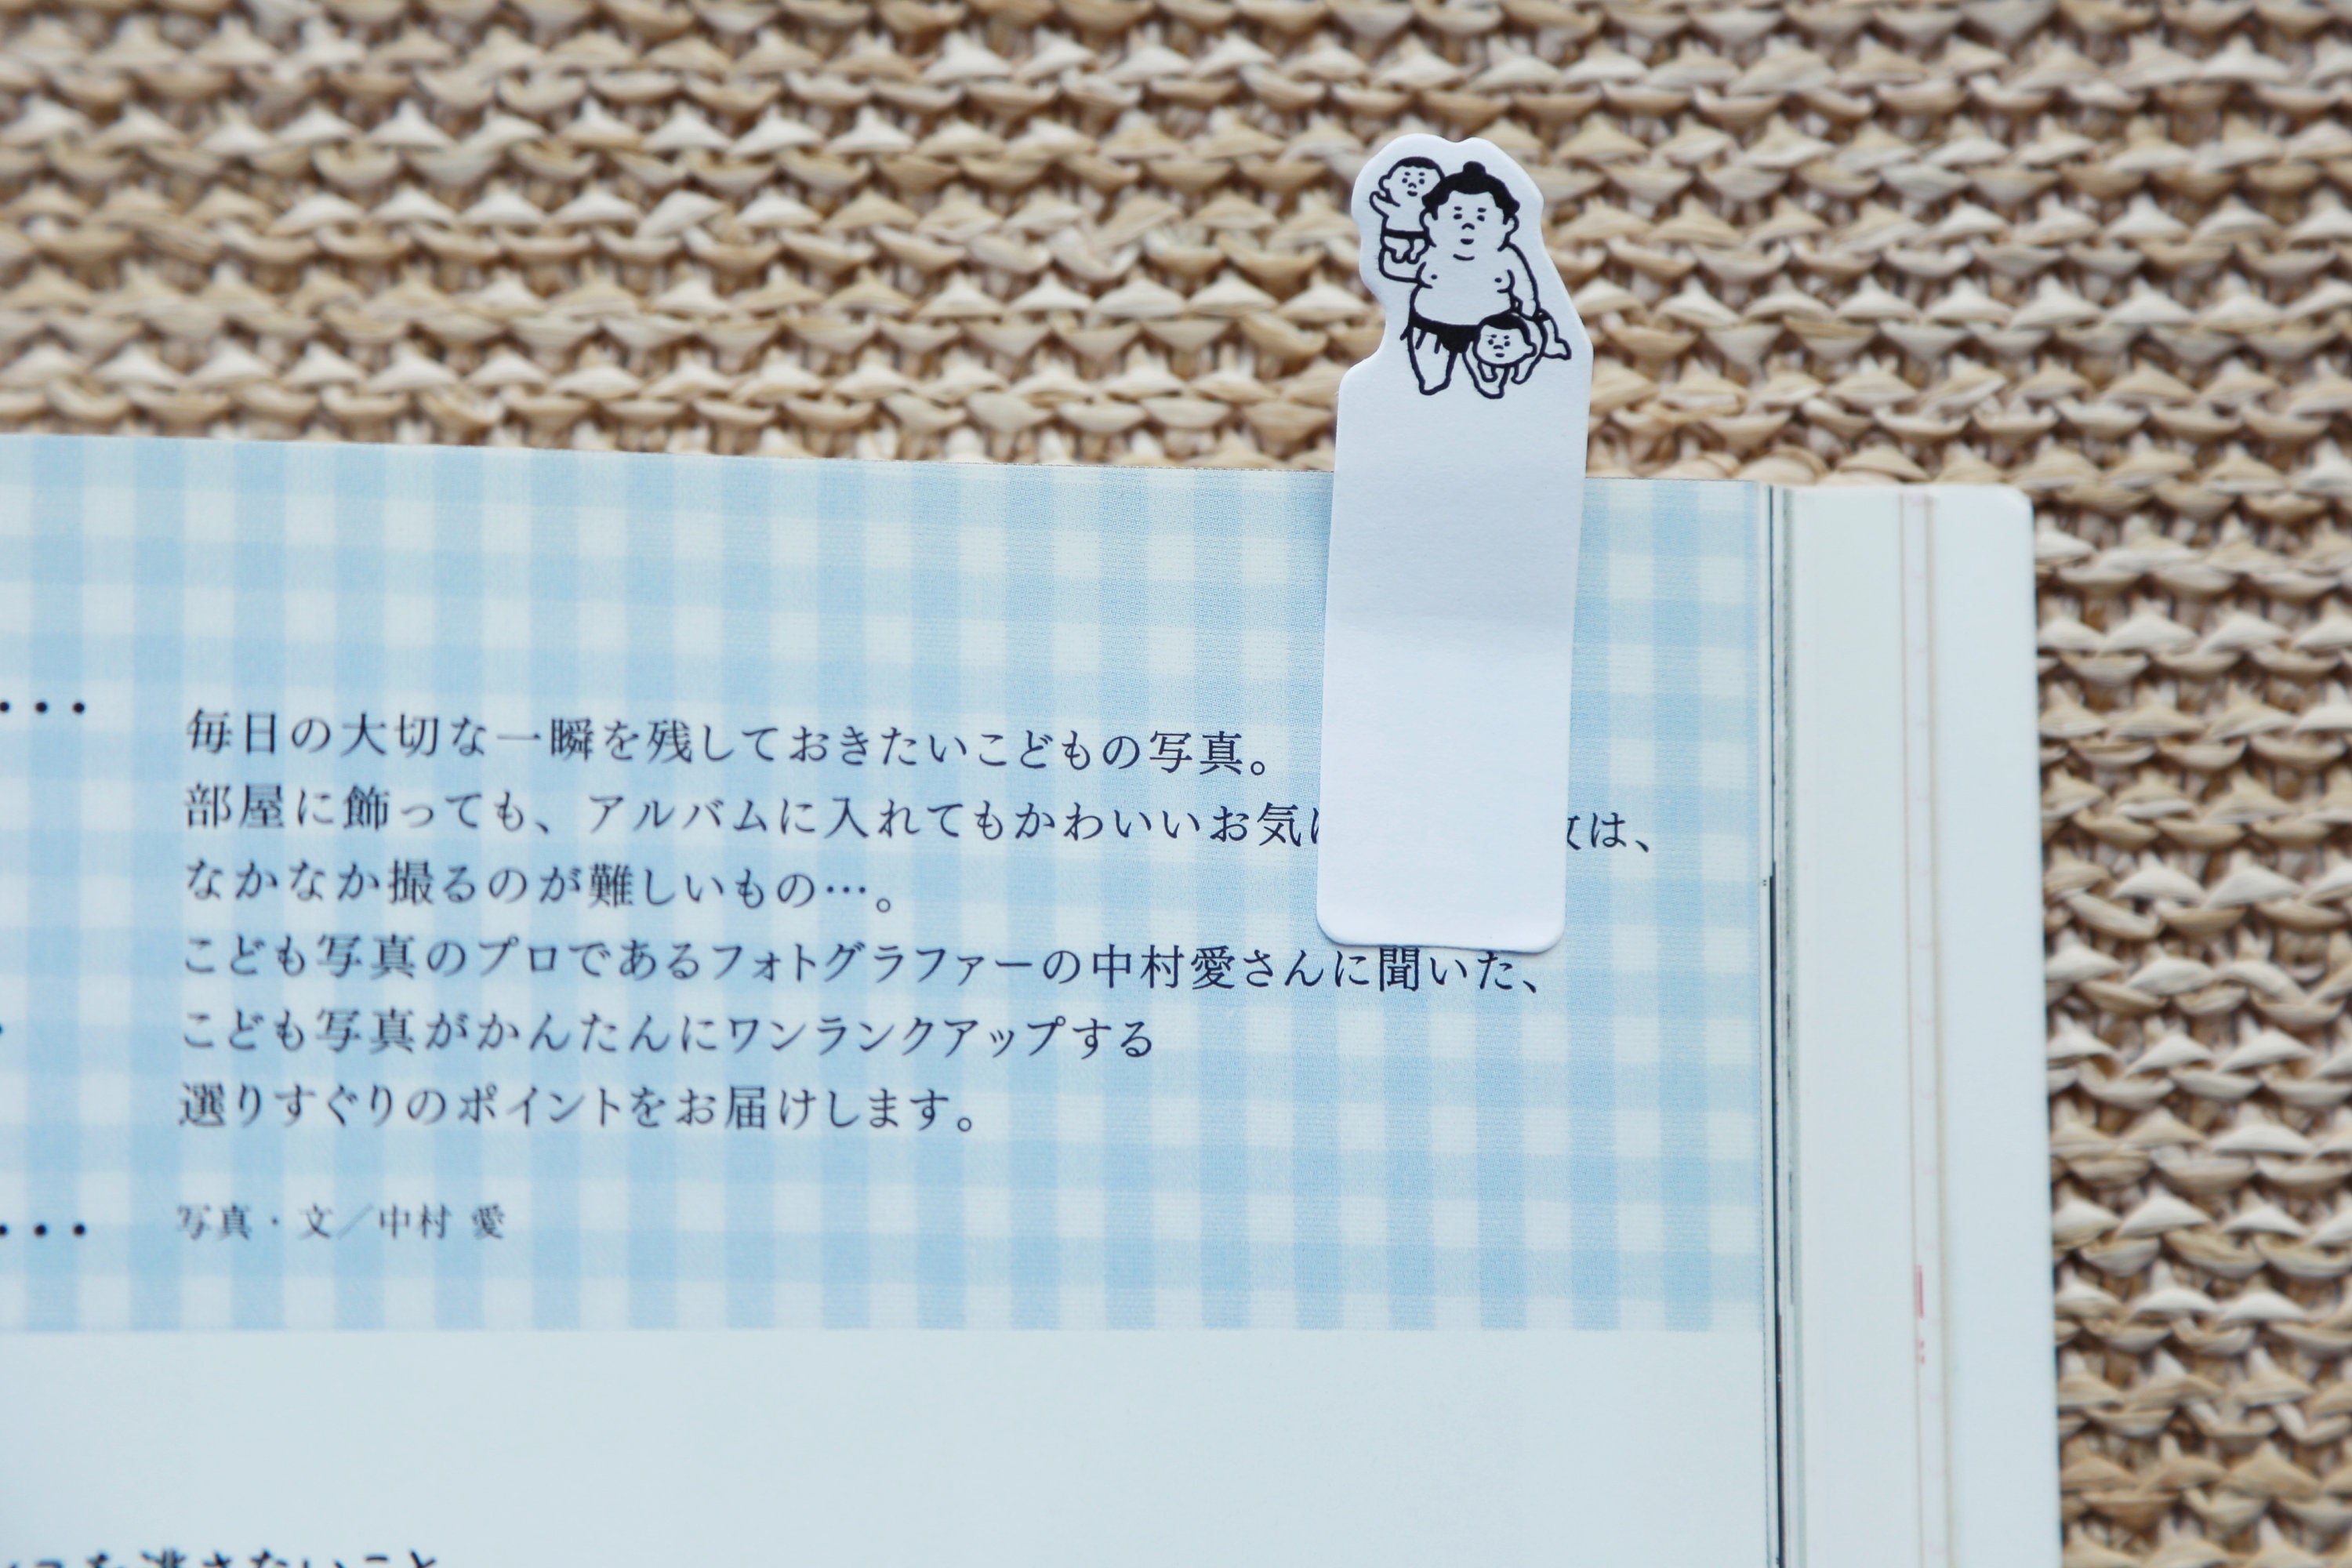 毎日の大切な一瞬を残しておきたいこどもの写真。
部屋に飾っても、アルバムに入れてもかわいいお気に は、
なかなか撮るのが難しいもの…。
こども写真のプロであるフォトグラファーの中村愛さんに聞いた、
こども写真がかんたんにワンランクアップする
選りすぐりのポイントをお届けします。
写真・文／中村 愛
を逃さないこと